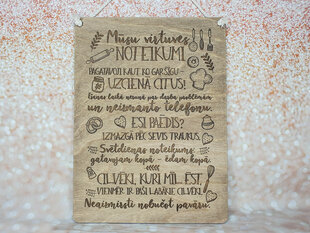 Mūsu virtuves
NOTEIKUMI
PAGATAVOJI KAUT KO GARŠĪGU -
UZCIENĀ CITUS!
vakarā nerunā par darba problēmām
un neizmanto telefonu.
ESI PAĒDIS?
IZMAZGĀ PĒC SEVIS TRAUKUS.
Svētdienas noteikums
gatavojam kopā - ēdam kopā.
CILVĒKI, KURI MĪL ĒST,
VIENMĒR IR PAŠI LABĀKIE CILVĒKI.
Neaizmirsti nobučot pavāru.